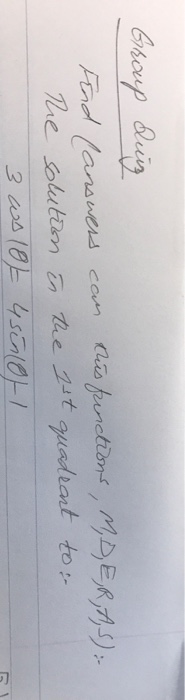 Group Quiz
Find (answers can this functions, M,D,E,R,A,S) :-
The solution in the 1st quadrant to :-
3 cos(θ) = 4 sin(θ) - 1